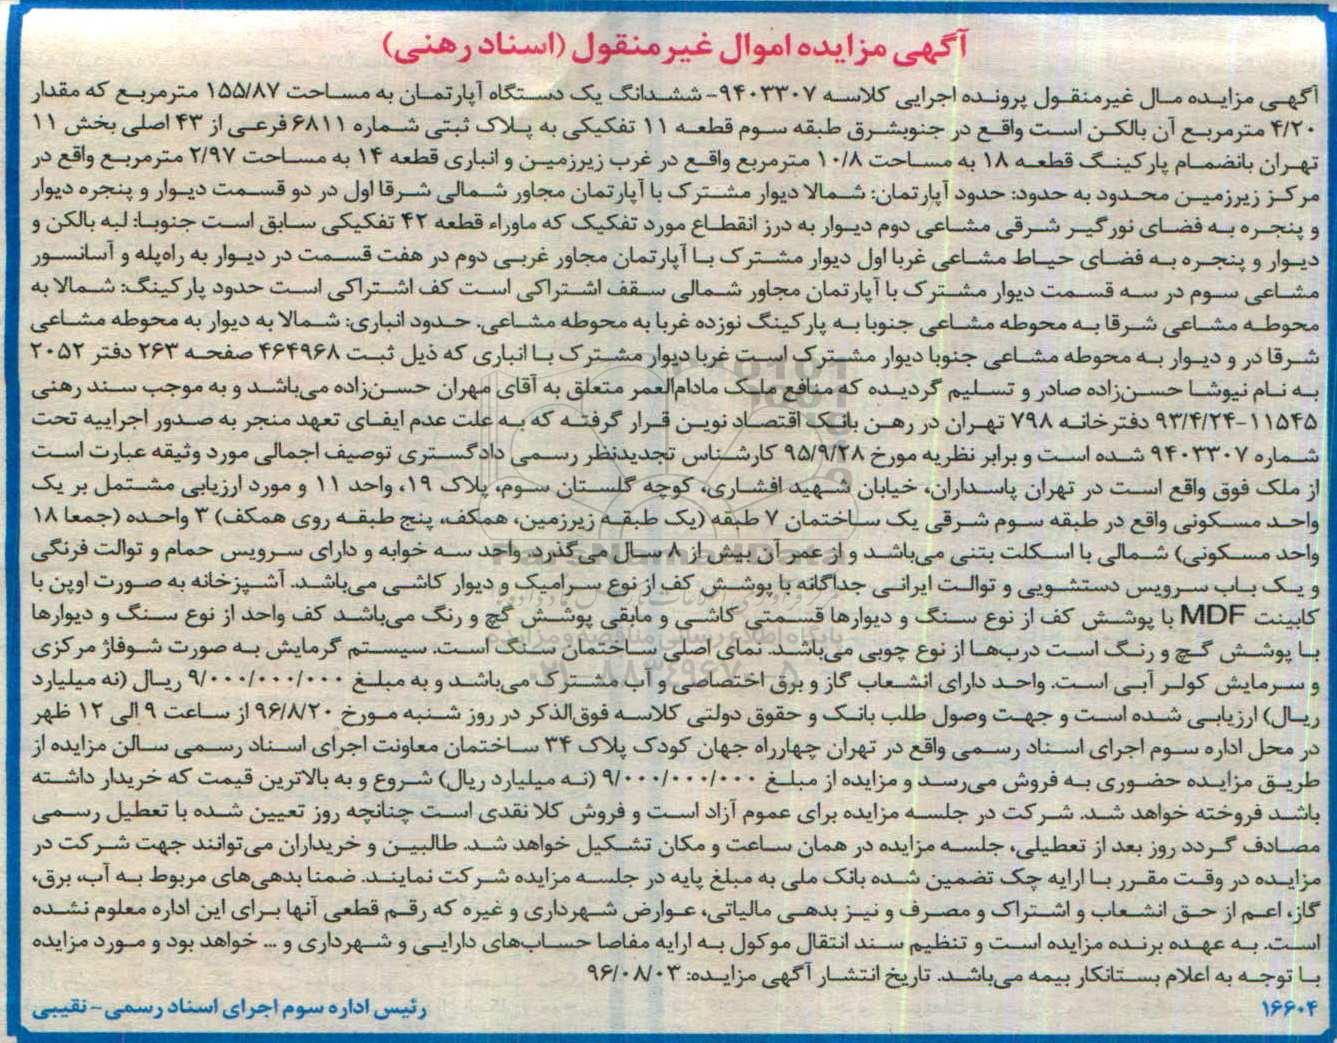 آگهی مزایده اموال غیرمنقول (اسناد رهنی)
آگهی مزایده مال غیرمنقول پرونده اجرایی کلاسه ۹۴۰۳۳۰۷- ششدانگ یک دستگاه آپارتمان به مساحت ۱۵۵/۸۷ مترمربع که مقدار
۴/۲۰ مترمربع آن بالکن است واقع در جنوبشرق طبقه سوم قطعه ۱۱ تفکیکی به پلاک ثبتی شماره ۶۸۱۱ فرعی از ۴۳ اصلی بخش ۱۱
تهران بانضمام پارکینگ قطعه ۱۸ به مساحت ۱۰/۸ مترمربع واقع در غرب زیرزمین و انباری قطعه ۱۴ به مساحت ۲/۹۷ مترمربع واقع در
مرکز زیرزمین محدود به حدود: حدود آپارتمان: شمالا دیوار مشترک با آپارتمان مجاور شمالی شرقا اول در دو قسمت دیوار و پنجره دیوار
و پنجره به فضای نورگیر شرقی مشاعی دوم دیوار به درز انقطاع مورد تفکیک که ماوراء قطعه ۴۲ تفکیکی سابق است جنوبا: لبه بالکن و
دیوار و پنجره به فضای حیاط مشاعی غربا اول دیوار مشترک با آپارتمان مجاور غربی دوم در هفت قسمت در دیوار به راه‌پله و آسانسور
مشاعی سوم در سه قسمت دیوار مشترک با آپارتمان مجاور شمالی سقف اشتراکی است کف اشتراکی است حدود پارکینگ: شمالا به
محوطه مشاعی شرقا به محوطه مشاعی جنوبا به پارکینگ نوزده غربا به محوطه مشاعی. حدود انباری: شمالا به دیوار به محوطه مشاعی
شرقا در و دیوار به محوطه مشاعی جنوبا دیوار مشترک است غربا دیوار مشترک با انباری که ذیل ثبت ۴۶۴۹۶۸ صفحه ۲۶۳ دفتر ۲۰۵۲
به نام نیوشا حسن‌زاده صادر و تسلیم گردیده که منافع ملک مادام‌العمر متعلق به آقای مهران حسن‌زاده می‌باشد و به موجب سند رهنی
۱۱۵۴۵-۹۳/۴/۲۴ دفترخانه ۷۹۸ تهران در رهن بانک اقتصاد نوین قرار گرفته که به علت عدم ایفای تعهد منجر به صدور اجراییه تحت
شماره ۹۴۰۳۳۰۷ شده است و برابر نظریه مورخ ۹۵/۹/۲۸ کارشناس تجدیدنظر رسمی دادگستری توصیف اجمالی مورد وثیقه عبارت است
از ملک فوق واقع است در تهران پاسداران، خیابان شهید افشاری، کوچه گلستان سوم، پلاک ۱۹، واحد ۱۱ و مورد ارزیابی مشتمل بر یک
واحد مسکونی واقع در طبقه سوم شرقی یک ساختمان ۷ طبقه (یک طبقه زیرزمین، همکف، پنج طبقه روی همکف) ۳ واحده (جمعا ۱۸
واحد مسکونی) شمالی با اسکلت بتنی می‌باشد و از عمر آن بیش از ۸ سال می‌گذرد. واحد سه خوابه و دارای سرویس حمام و توالت فرنگی
و یک باب سرویس دستشویی و توالت ایرانی جداگانه با پوشش کف از نوع سرامیک و دیوار کاشی می‌باشد. آشپزخانه به صورت اوپن با
کابینت MDF با پوشش کف از نوع سنگ و دیوارها قسمتی کاشی و مابقی پوشش گچ و رنگ می‌باشد کف واحد از نوع سنگ و دیوارها
با پوشش گچ و رنگ است درب‌ها از نوع چوبی می‌باشد. نمای اصلی ساختمان سنگ است. سیستم گرمایش به صورت شوفاژ مرکزی
و سرمایش کولر آبی است. واحد دارای انشعاب گاز و برق اختصاصی و آب مشترک می‌باشد و به مبلغ ۹/۰۰۰/۰۰۰/۰۰۰ ریال (نه میلیارد
ریال) ارزیابی شده است و جهت وصول طلب بانک و حقوق دولتی کلاسه فوق‌الذکر در روز شنبه مورخ ۹۶/۸/۲۰ از ساعت ۹ الی ۱۲ ظهر
در محل اداره سوم اجرای اسناد رسمی واقع در تهران چهارراه جهان کودک پلاک ۳۴ ساختمان معاونت اجرای اسناد رسمی سالن مزایده از
طریق مزایده حضوری به فروش می‌رسد و مزایده از مبلغ ۹/۰۰۰/۰۰۰/۰۰۰ (نه میلیارد ریال) شروع و به بالاترین قیمت که خریدار داشته
باشد فروخته خواهد شد. شرکت در جلسه مزایده برای عموم آزاد است و فروش کلا نقدی است چنانچه روز تعیین شده با تعطیل رسمی
مصادف گردد روز بعد از تعطیلی، جلسه مزایده در همان ساعت و مکان تشکیل خواهد شد. طالبین و خریداران می‌توانند جهت شرکت در
مزایده در وقت مقرر با ارایه چک تضمین شده بانک ملی به مبلغ پایه در جلسه مزایده شرکت نمایند. ضمنا بدهی‌های مربوط به آب، برق،
گاز، اعم از حق انشعاب و اشتراک و مصرف و نیز بدهی مالیاتی، عوارض شهرداری و غیره که رقم قطعی آنها برای این اداره معلوم نشده
است. به عهده برنده مزایده است و تنظیم سند انتقال موکول به ارایه مفاصا حساب‌های دارایی و شهرداری و ... خواهد بود و مورد مزایده
با توجه به اعلام بستانکار بیمه می‌باشد. تاریخ انتشار آگهی مزایده: ۹۶/۰۸/۰۳
۱۶۶۰۴ رئیس اداره سوم اجرای اسناد رسمی - نقیبی